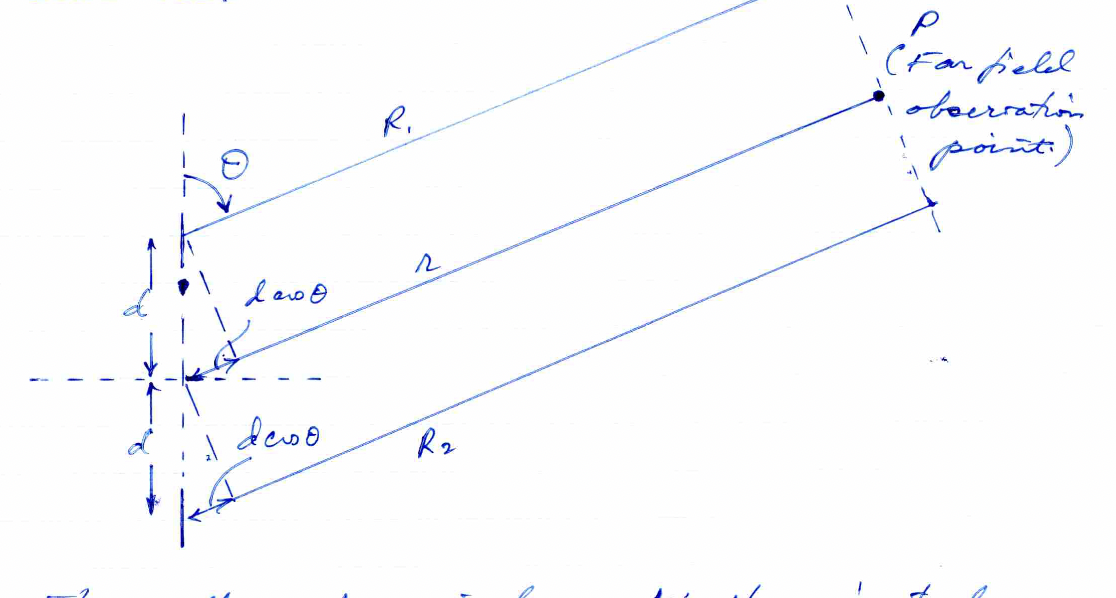 P
(Far field
observation
point.)
R₁
θ
r
d cos θ
d
d
d cos θ
R₂